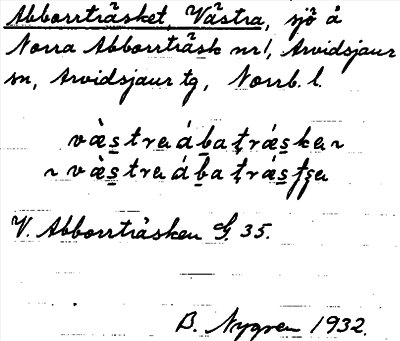 Abborrträsket, Västra, sjö å
Norra Abborrträsk nr 1, Arvidsjaur
sn, Arvidsjaur tg, Norrb. l.
væ̀stra ábatrǽskan
~ væ̀stra ábatrǽsʃʒa
V. Abborrträsken G. 35.
B. Nygren 1932.